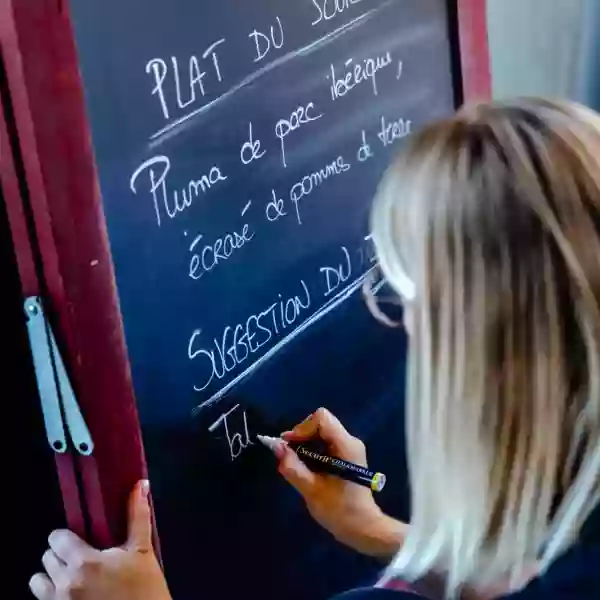 PLAT DU
Pluma de porc ibérique,
écrasé de pommes de terre
SUGGESTION DU
Tal
Securit CHALKMARKER